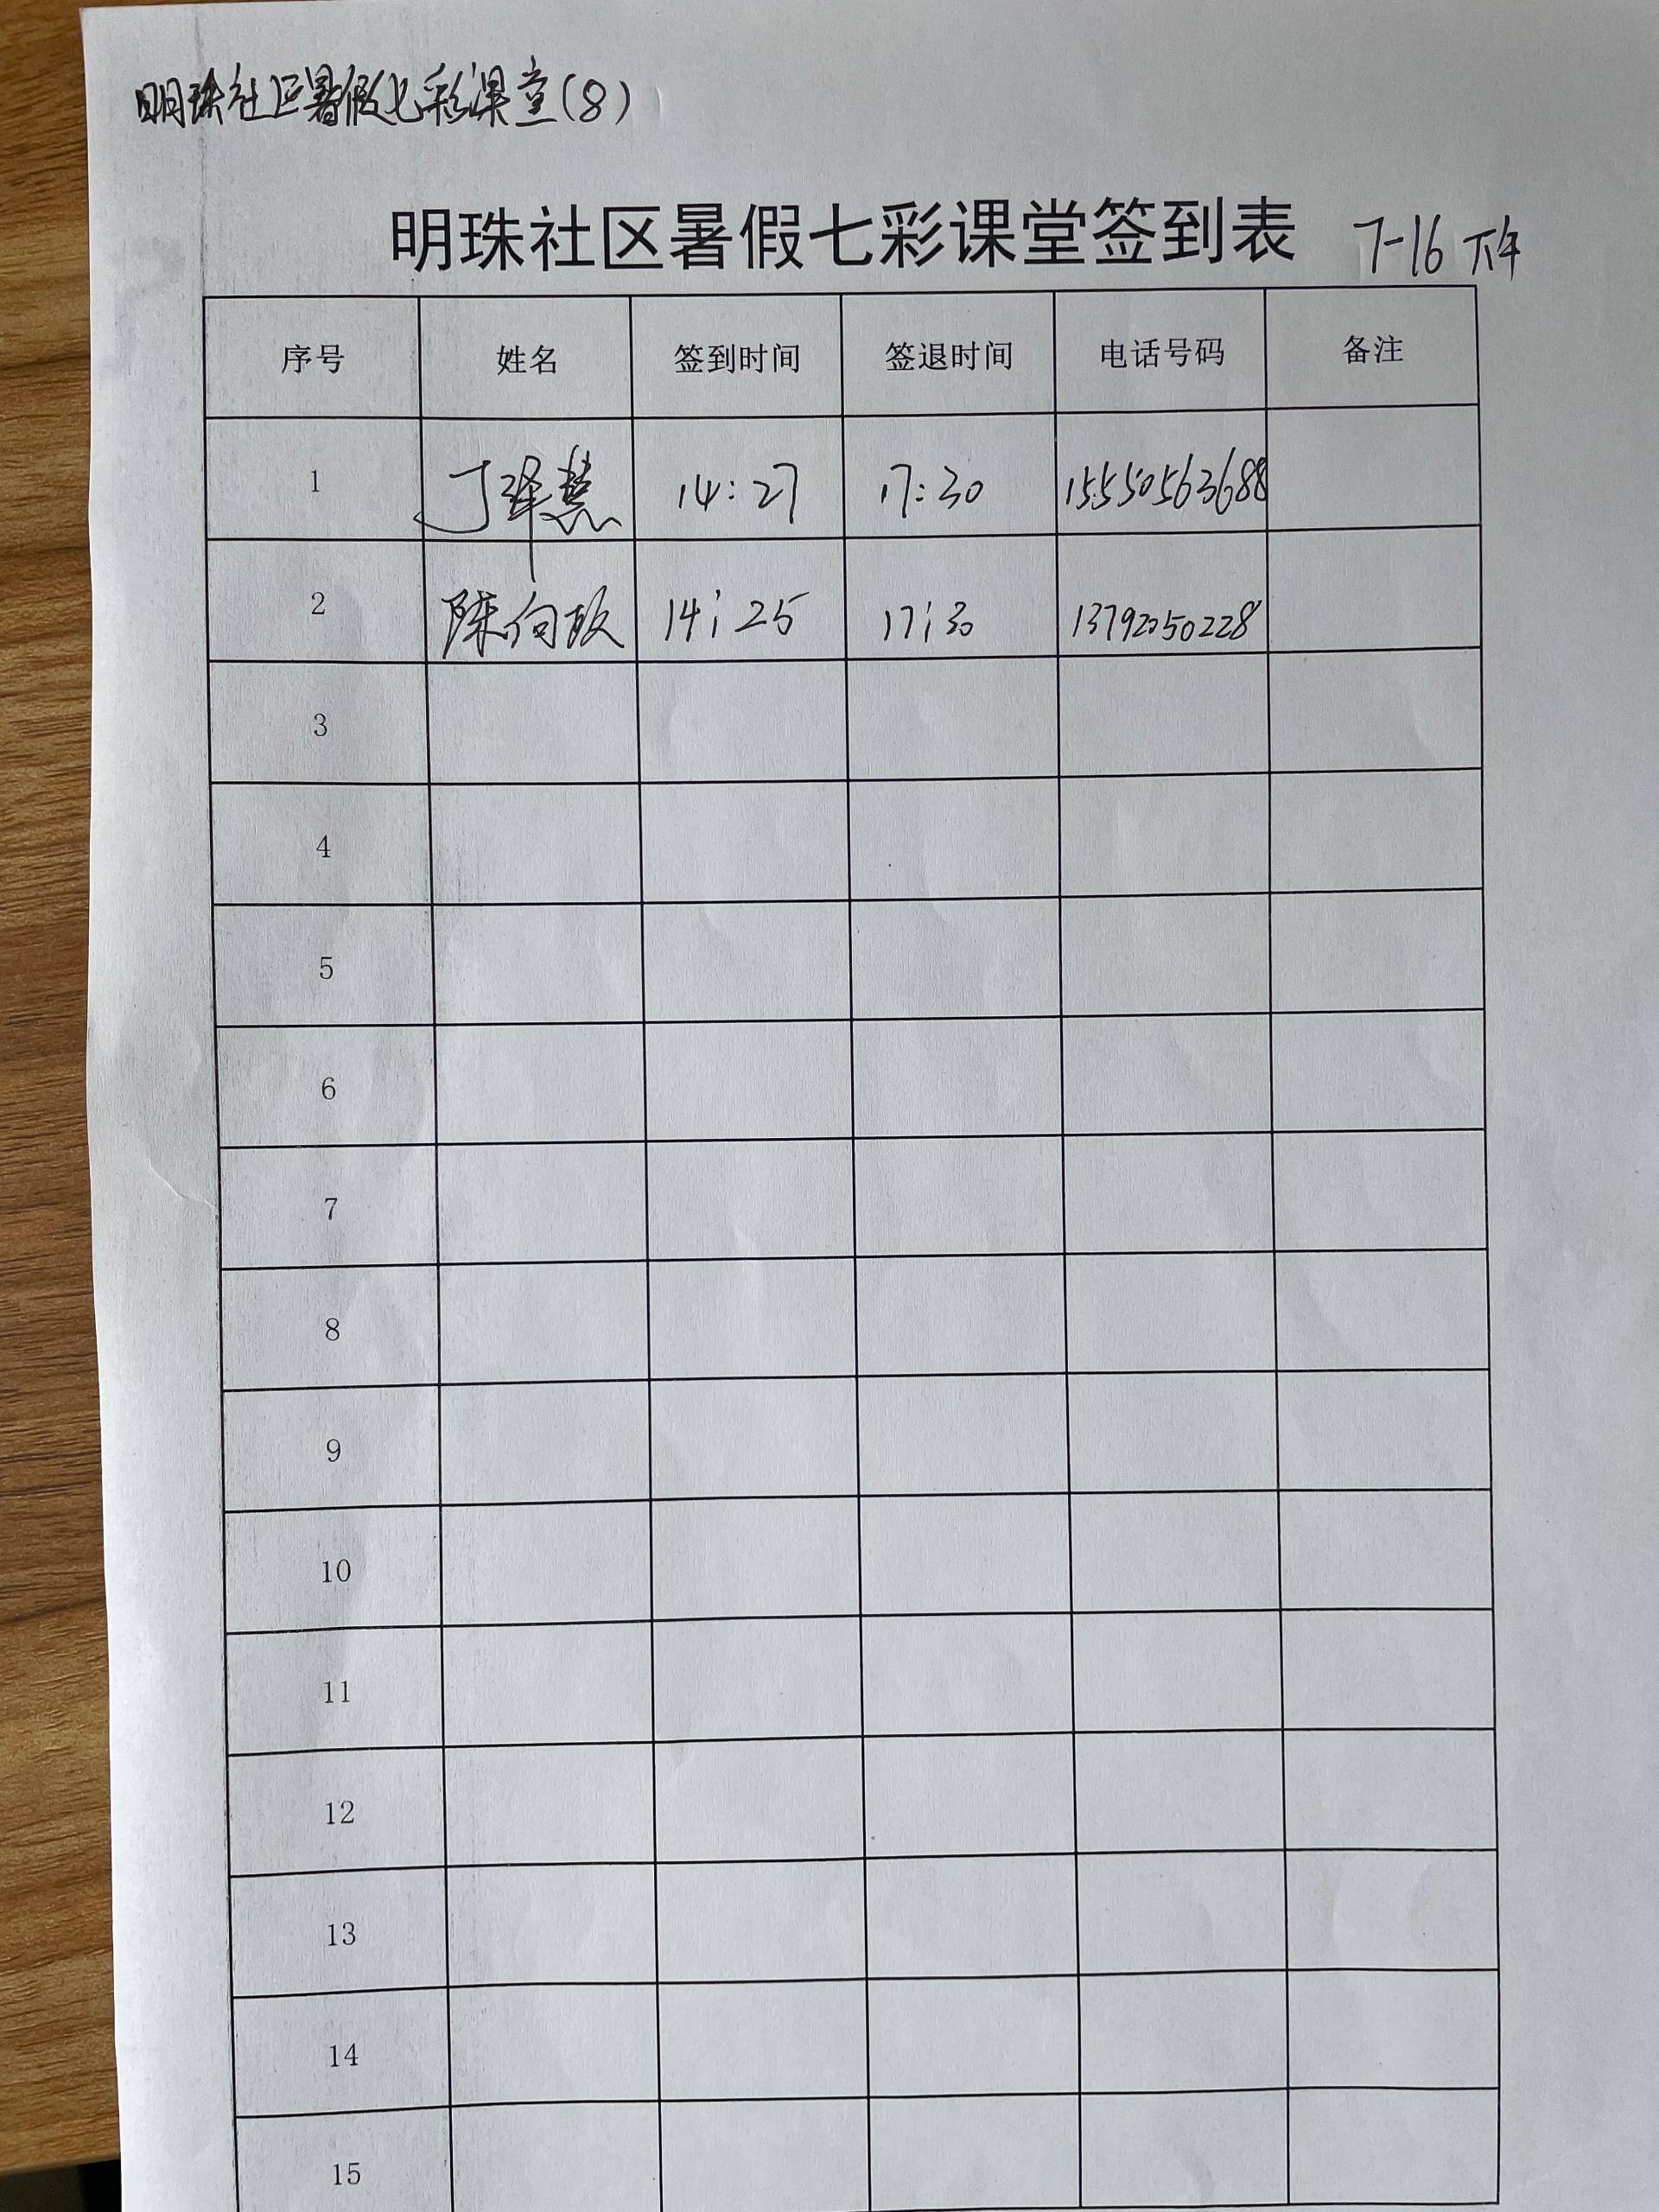 明珠社区暑假七彩课堂(8)
明珠社区暑假七彩课堂签到表 7-16 下午
序号 姓名 签到时间 签退时间 电话号码 备注
1 丁泽慧 14:27 17:30 15550563688
2 陈向 14:25 17:30 13792050228
3
4
5
6
7
8
9
10
11
12
13
14
15